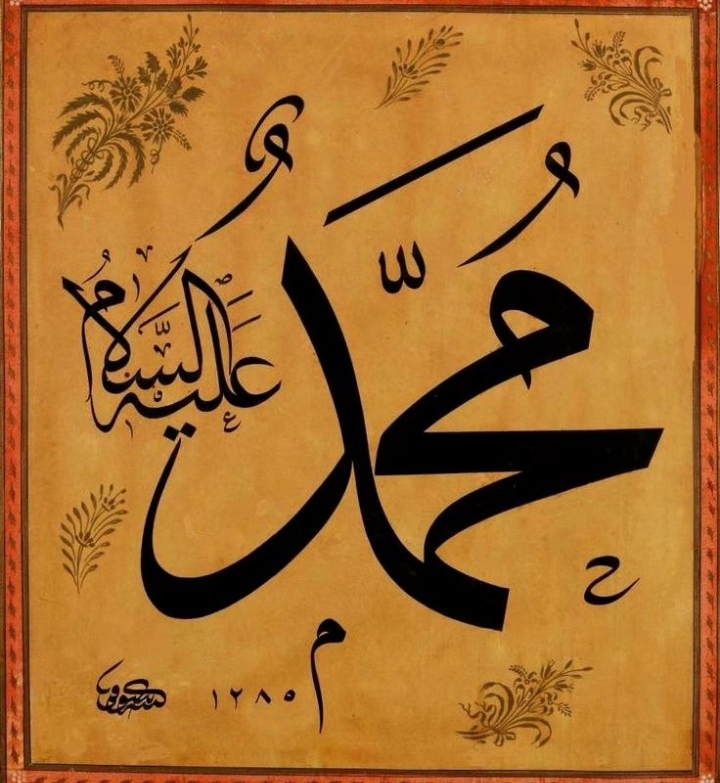 مُحَمَّدٌ
عَلَيْهِ السَّلَامُ
١٢٨٥